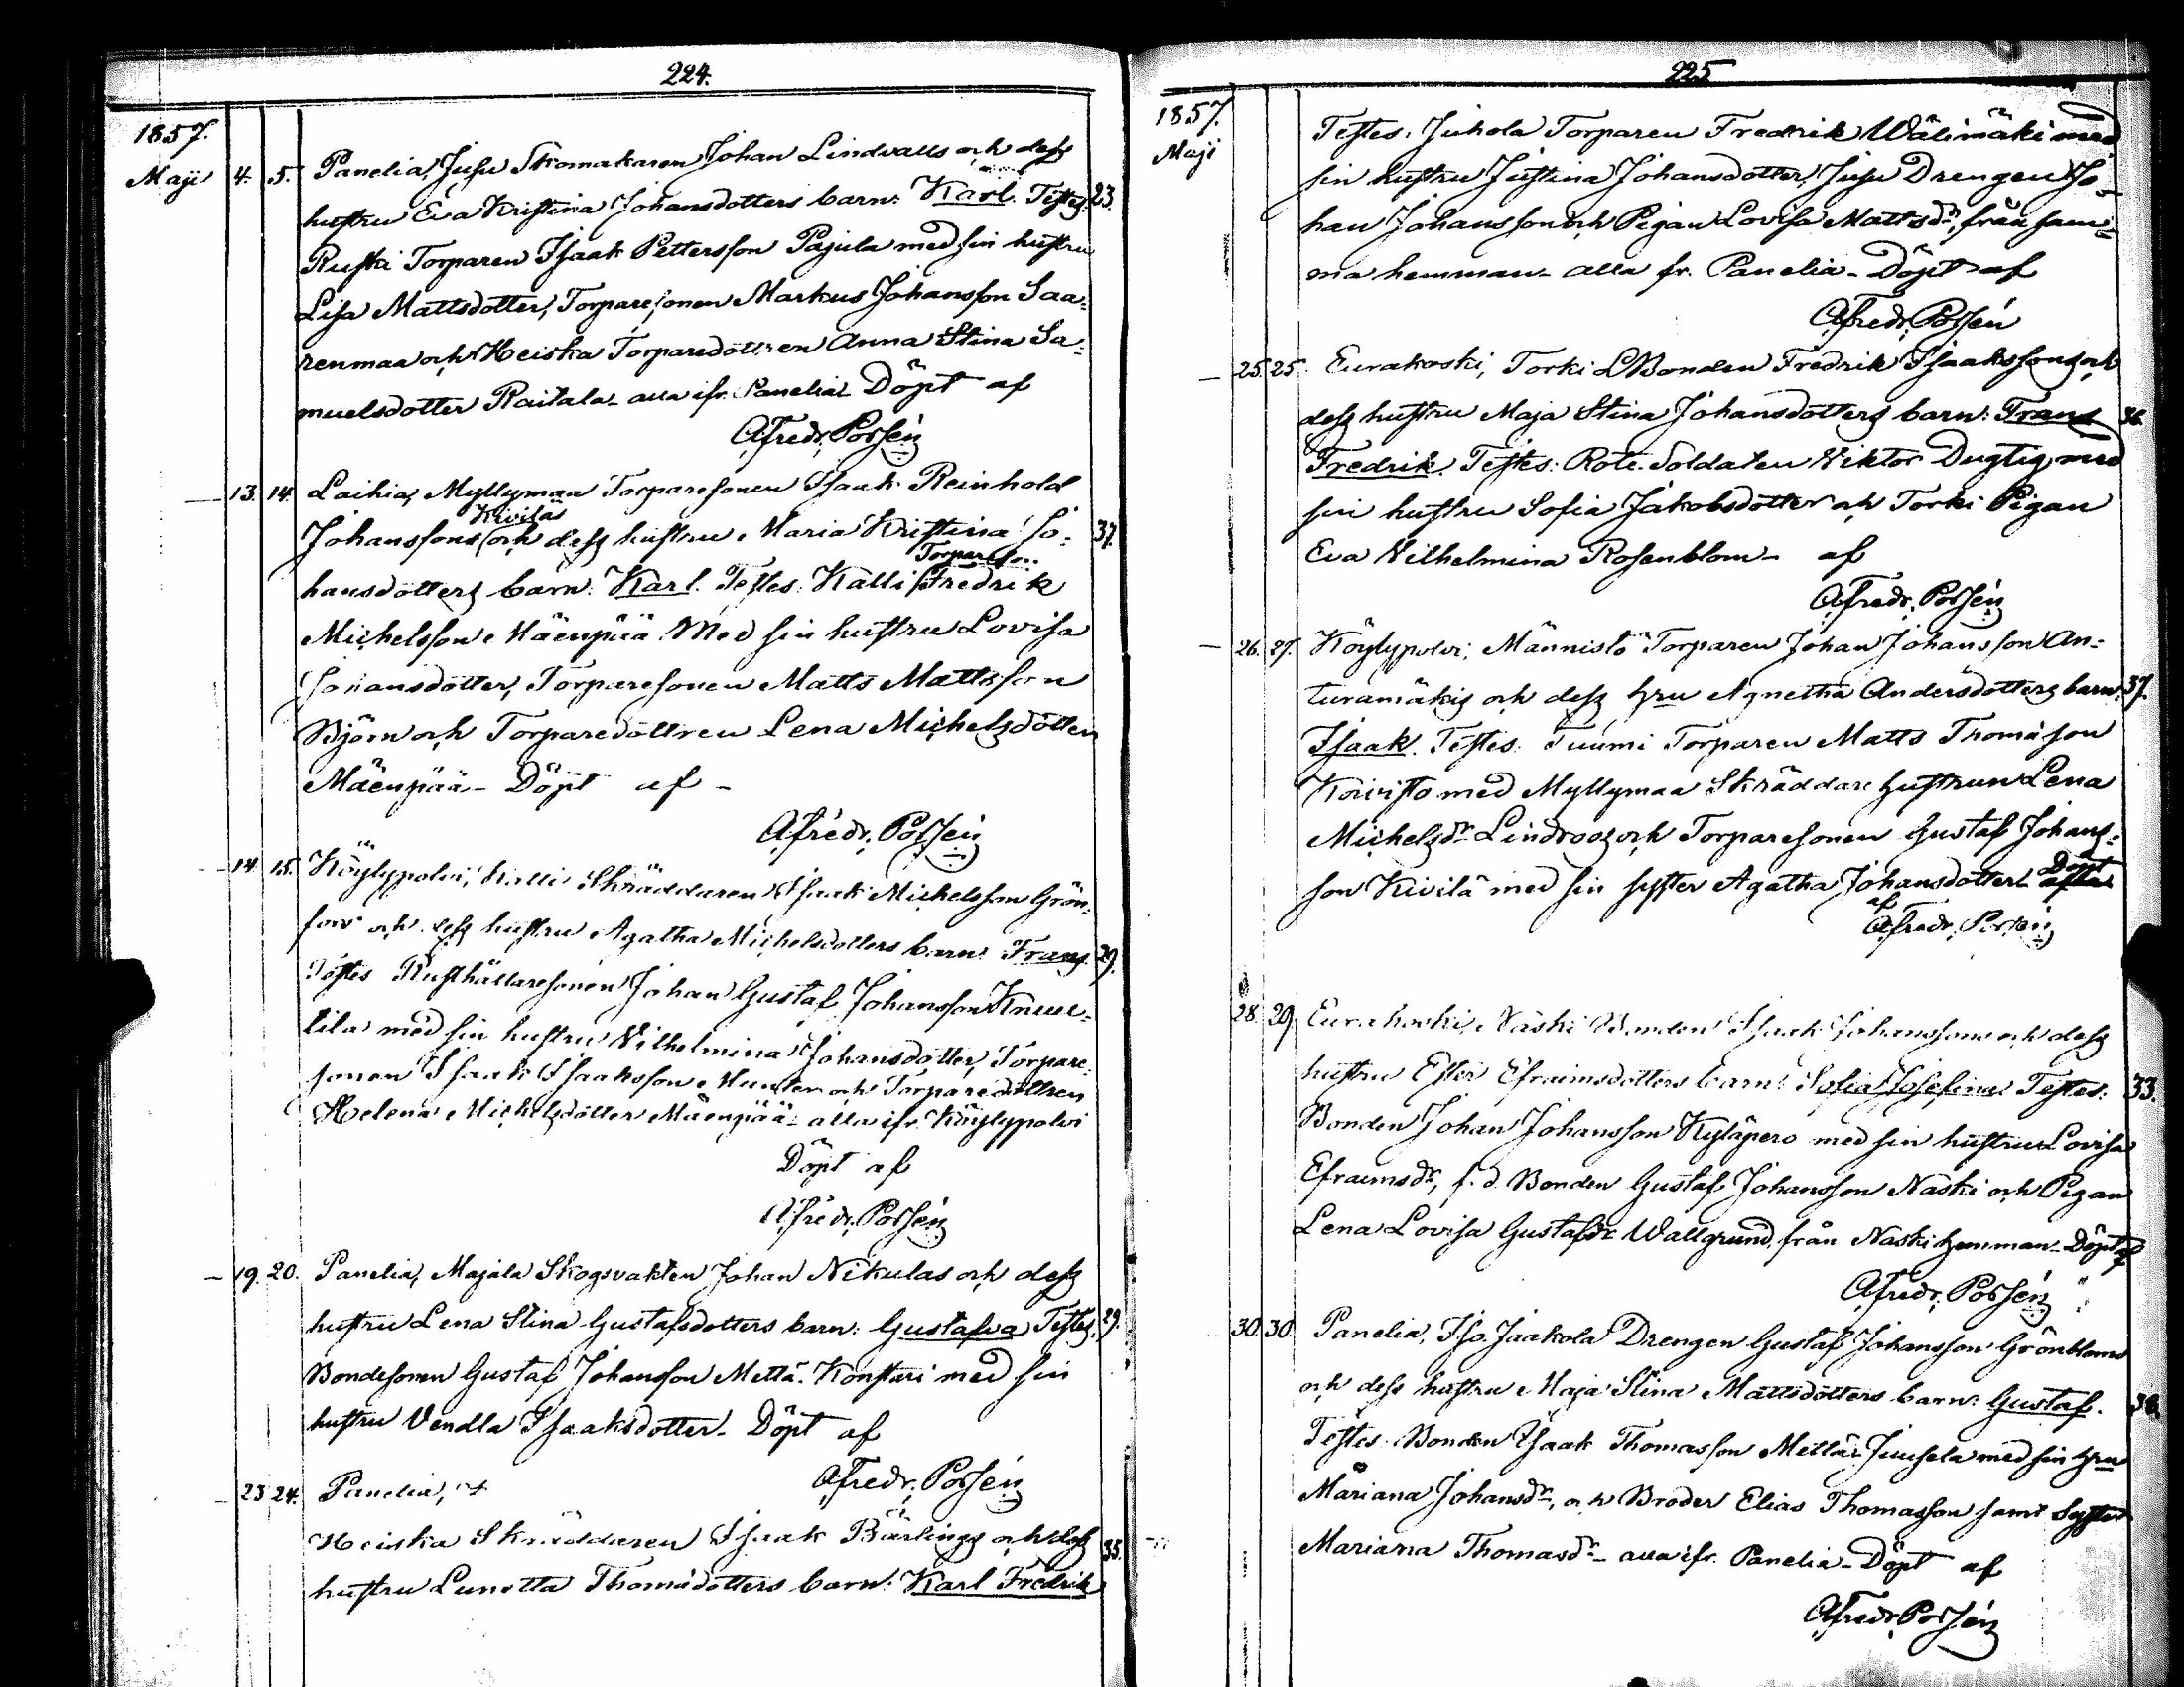 224.
1857.
Maji 4. 5. Panelia, Jusu Skomakaren Johan Lindvalls och dess
hustru Eva Kristina Johansdotters barn: Karl. Testes: 23.
Ruski Torparen Isaak Pettersson Pajula med sin hustru
Lisa Mattsdotter, Torparesonen Markus Johansson Saa=
renmaa och Heiska Torparedottren Anna Stina Sa=
muelsdotter Raitala - alla ifr. Panelia - Döpt af
A. Fredr. Porsén
— 13. 14. Laihia, Myllymaa Torparesonen Isaak Reinhold
Kivilä
Johanssons och dess hustru Maria Kristina Jo= 37.
Torpareson
hansdotters barn: Karl. Testes: Kalli Fredrik
Michelsson Mäenpää Med sin hustru Lovisa
Johansdotter, Torparesonen Matts Mattsson
Björn och Torparedottren Lena Michelsdotter
Mäenpää - Döpt af -
A. Fredr. Porsén
- 14. 15. Köylypolvi, Kalli Skräddaren Isaak Michelsson Grön=
fors och dess hustru Agatha Michelsdotters barn: Frans. 29.
Testes Rusthållaresonen Johan Gustaf Johansson Knuu=
tila med sin hustru Vilhelmina Johansdotter, Torpare=
sonen Isaak Isaaksson Hunter och Torparedottren
Helena Michelsdotter Mäenpää - alla ifr. Köylypolvi
Döpt af
A. Fredr. Porsén
— 19. 20. Panelia, Majala Skogsvakten Johan Nikulas och dess
hustru Lena Stina Gustafsdotters barn: Gustafva Testes: 29.
Bondesonen Gustaf Johansson Mettä-Konstari med sin
hustru Vendla Isaaksdotter - Döpt af
A. Fredr. Porsén
- 23 24. Panelia,
Heiska Skräddaren Isaak Bärlings och dess 35.
hustru Lunetta Thomädotters barn: Karl Fredrik
225
1857.
Maji
Testes: Juhola Torparen Fredrik Wälimäki med
sin hustru Justina Johansdotter, Jusu Drengen Jo-
han Johansson och Pigan Lovisa Mattsdr, från sam=
ma hemman - alla fr. Panelia - Döpt af
A. Fredr. Porsén
— 25. 25. Eurakoski, Torki Bonden Fredrik Isaakssons och
dess hustru Maja Stina Johansdotters barn: Frans 36.
Fredrik. Testes: Rote-Soldaten Viktor Dugtig med
sin hustru Sofia Jakobsdotter och Torki Pigan
Eva Vilhelmina Rosenblom - af
A. Fredr. Porsén
— 26. 27. Köylypolvi, Männistö Torparen Johan Johansson An=
turamäkis och dess hru Agnetha Andersdotters barn: 37.
Isaak. Testes: Tuumi Torparen Matts Thomäson
Koivisto med Myllymaa Skräddare hustrun Lena
Michelsdr Lindroos och Torparesonen Gustaf Johans=
son Kivilä med sin syster Agatha Johansdotter - Döpt
af
A. Fredr. Porsén
28. 29. Eurakoski, Naski Bonden Isaak Johanssons och dess
hustru Ester Efraimsdotters barn: Sofia Josefina Testes: 33.
Bonden Johan Johansson Kyläpero med sin hustru Lovisa
Efraimsdr, f. d. Bonden Gustaf Johansson Naski och Pigan
Lena Lovisa Gustafsdr Wallgrund, från Naski hemman - Döpt af
A. Fredr. Porsén
30. 30. Panelia, Iso-Jaakola Drengen Gustaf Johansson Grönbloms
och dess hustru Maja Stina Mattsdotters barn: Gustaf. 38.
Testes: Bonden Isaak Thomasson Mettä-Juusela med sin hru
Mariana Johansdr, och Broder Elias Thomasson samt Syster
Mariana Thomasdr - alla ifr. Panelia - Döpt af
A. Fredr. Porsén